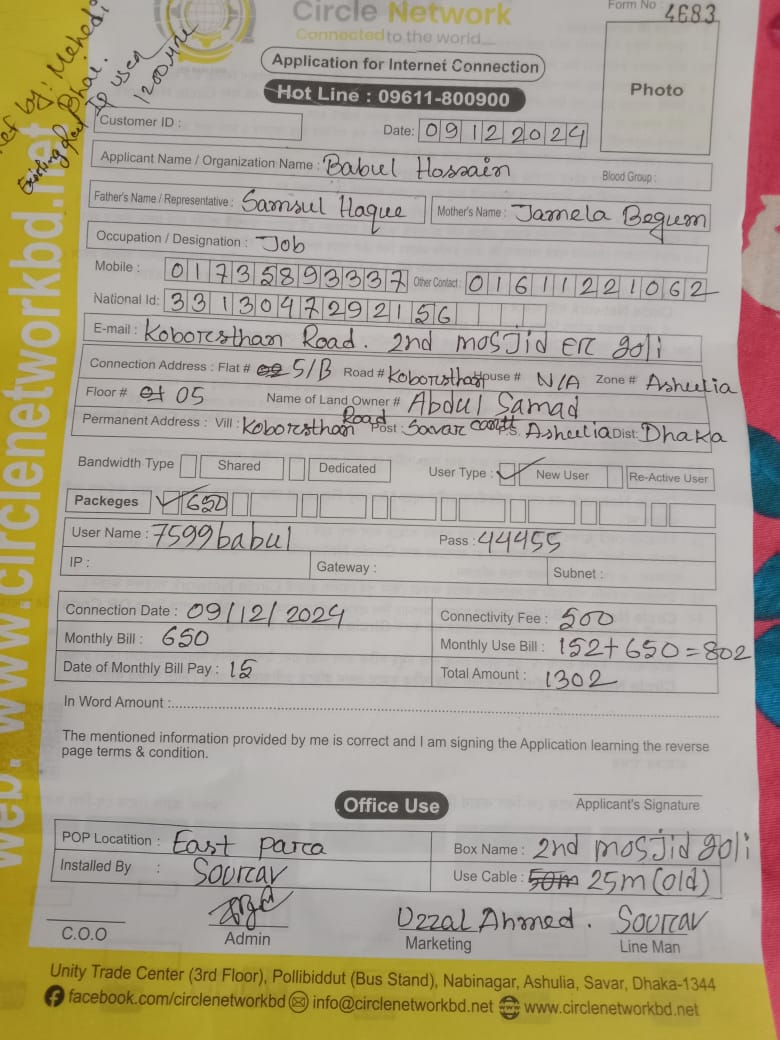 Circle Network
Connected to the world...
Form No : 4683
Ref by: Mehedi Bhai.
IP used
1200 mtr
Application for Internet Connection
Hot Line : 09611-800900
Photo
Customer ID :
Date: 09122024
Applicant Name / Organization Name : Babul Hossain
Blood Group :
Father's Name / Representative : Samsul Haque Mother's Name : Jamela Begum
Occupation / Designation : Job
Mobile : 01735893337 Other Contact : 01611221062
National Id: 3313047292156
E-mail : Koborsthan Road. 2nd mosjid er goli
Connection Address : Flat # 5/B Road # Koborsthan House # N/A Zone # Ashulia
Floor # 05 Name of Land Owner # Abdul Samad
Permanent Address : Vill : Koborsthan Road Post : Savar cantt P.S. Ashulia Dist: Dhaka
Bandwidth Type Shared Dedicated User Type : ✓ New User Re-Active User
Packeges ✓ 650
User Name : 7599babul Pass : 44455
IP : Gateway : Subnet :
Connection Date : 09/12/2024 Connectivity Fee : 500
Monthly Bill : 650 Monthly Use Bill : 152+650=802
Date of Monthly Bill Pay : 15 Total Amount : 1302
In Word Amount :
The mentioned information provided by me is correct and I am signing the Application learning the reverse
page terms & condition.
Applicant's Signature
Office Use
POP Locatition : East Para Box Name : 2nd mosjid goli
Installed By : Sourav Use Cable : 50m 25m (old)
Uzzal Ahmed. Sourav
C.O.O Admin Marketing Line Man
Unity Trade Center (3rd Floor), Pollibiddut (Bus Stand), Nabinagar, Ashulia, Savar, Dhaka-1344
facebook.com/circlenetworkbd info@circlenetworkbd.net www.circlenetworkbd.net
web: www.circlenetworkbd.net